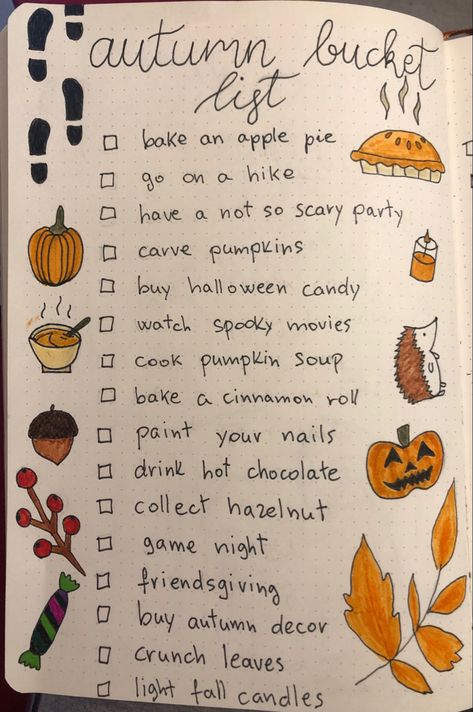 autumn bucket
list
bake an apple pie
go on a hike
have a not so scary party
carve pumpkins
buy halloween candy
watch spooky movies
cook pumpkin soup
bake a cinnamon roll
paint your nails
drink hot chocolate
collect hazelnut
game night
friendsgiving
buy autumn decor
crunch leaves
light fall candles